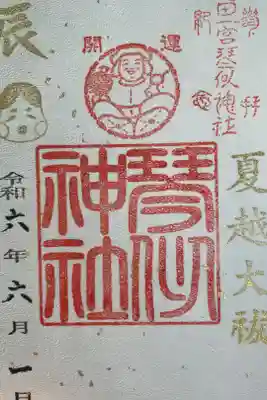 宮琴似神社
拝
紀念
開運
夏越大祓
琴似
神社
辰
令和六年六月一日